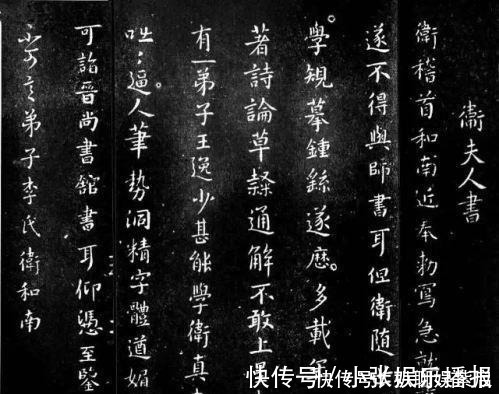 衛夫人書
衛稽首和南近奉勅寫急就
遂不得與師書耳但衛随
學規摹鍾繇遂歷多載年
著詩論草隸通解不敢上
有一弟子王逸少甚能學衛真
咄〻逼人筆勢洞精字體遒媚
可詣晉尚書館書耳仰憑至鑒
不可言弟子李氏衛和南
快传号/小张娱乐播报